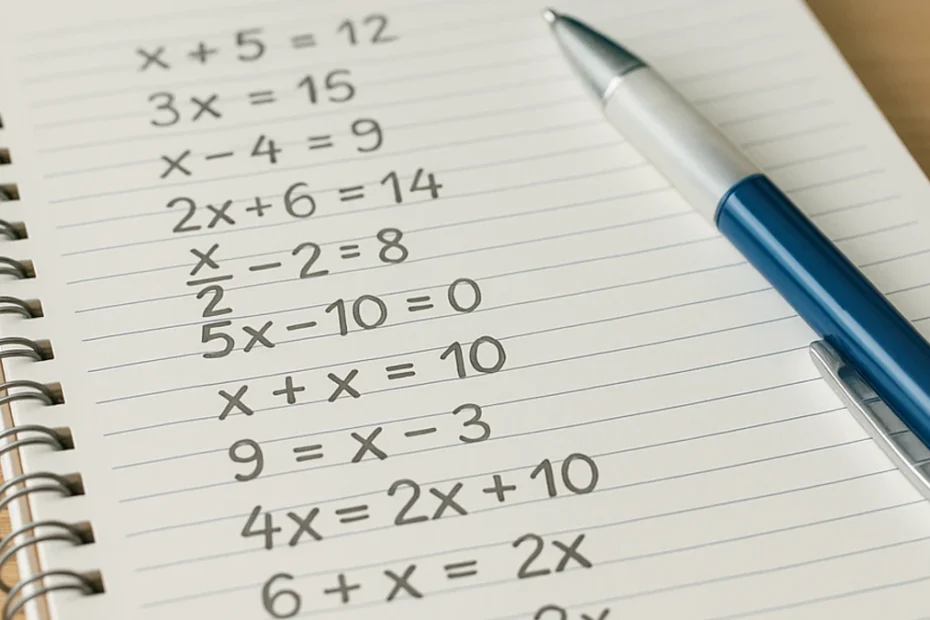 x + 5 = 12
3x = 15
x - 4 = 9
2x + 6 = 14
x/2 - 2 = 8
5x - 10 = 0
x + x = 10
9 = x - 3
4x = 2x + 10
6 + x = 2x